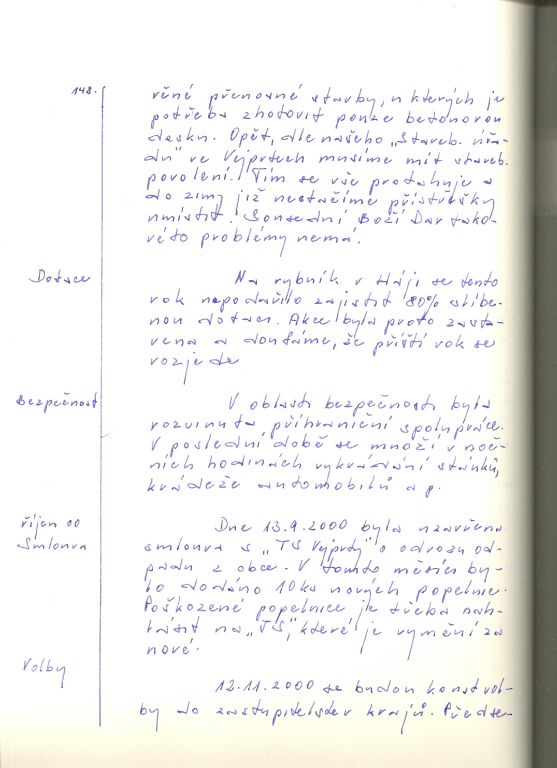 148.
věné přenosné stavby, u kterých je
potřeba zhotovit pouze betonovou
desku. Opět, dle našeho „Staveb. úřa-
du" ve Vejprtech musíme mít staveb.
povolení. Tím se vše protahuje a
do zimy již nestačíme přístřešky
umístit. Sousední Boží Dar tako-
véto problémy nemá.
Dotace
Na rybník v Háji se tento
rok nepodařilo zajistit 80% slíbe-
nou dotaci. Akce byla proto zasta-
vena a doufáme, že příští rok se
rozjede
Bezpečnost
V oblasti bezpečnosti byla
rozvinuta příhraniční spolupráce.
V poslední době se množí v noč-
ních hodinách vykrádání stánků,
krádeže automobilů a p.
říjen 00
Smlouva
Dne 13.9.2000 byla uzavřena
smlouva s „TS Vejprty" o odvozu od-
padu z obce. V tomto měsíci by-
lo dodáno 10 ks nových popelnic.
Poškozené popelnice je třeba nah-
lásit na „TS", které je vymění za
nové.
Volby
12.11.2000 se budou konat vol-
by do zastupitelstev krajů. Předse-